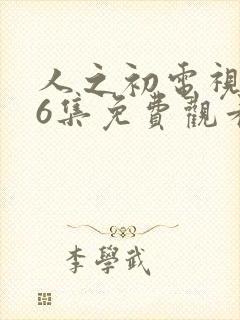 人之初電視
6集免費觀看
李學武